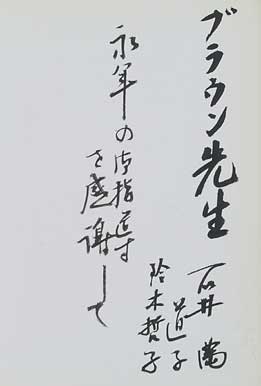 ブラウン先生
永年の御指導
を感謝して
石井 満
道子
鈴木哲子